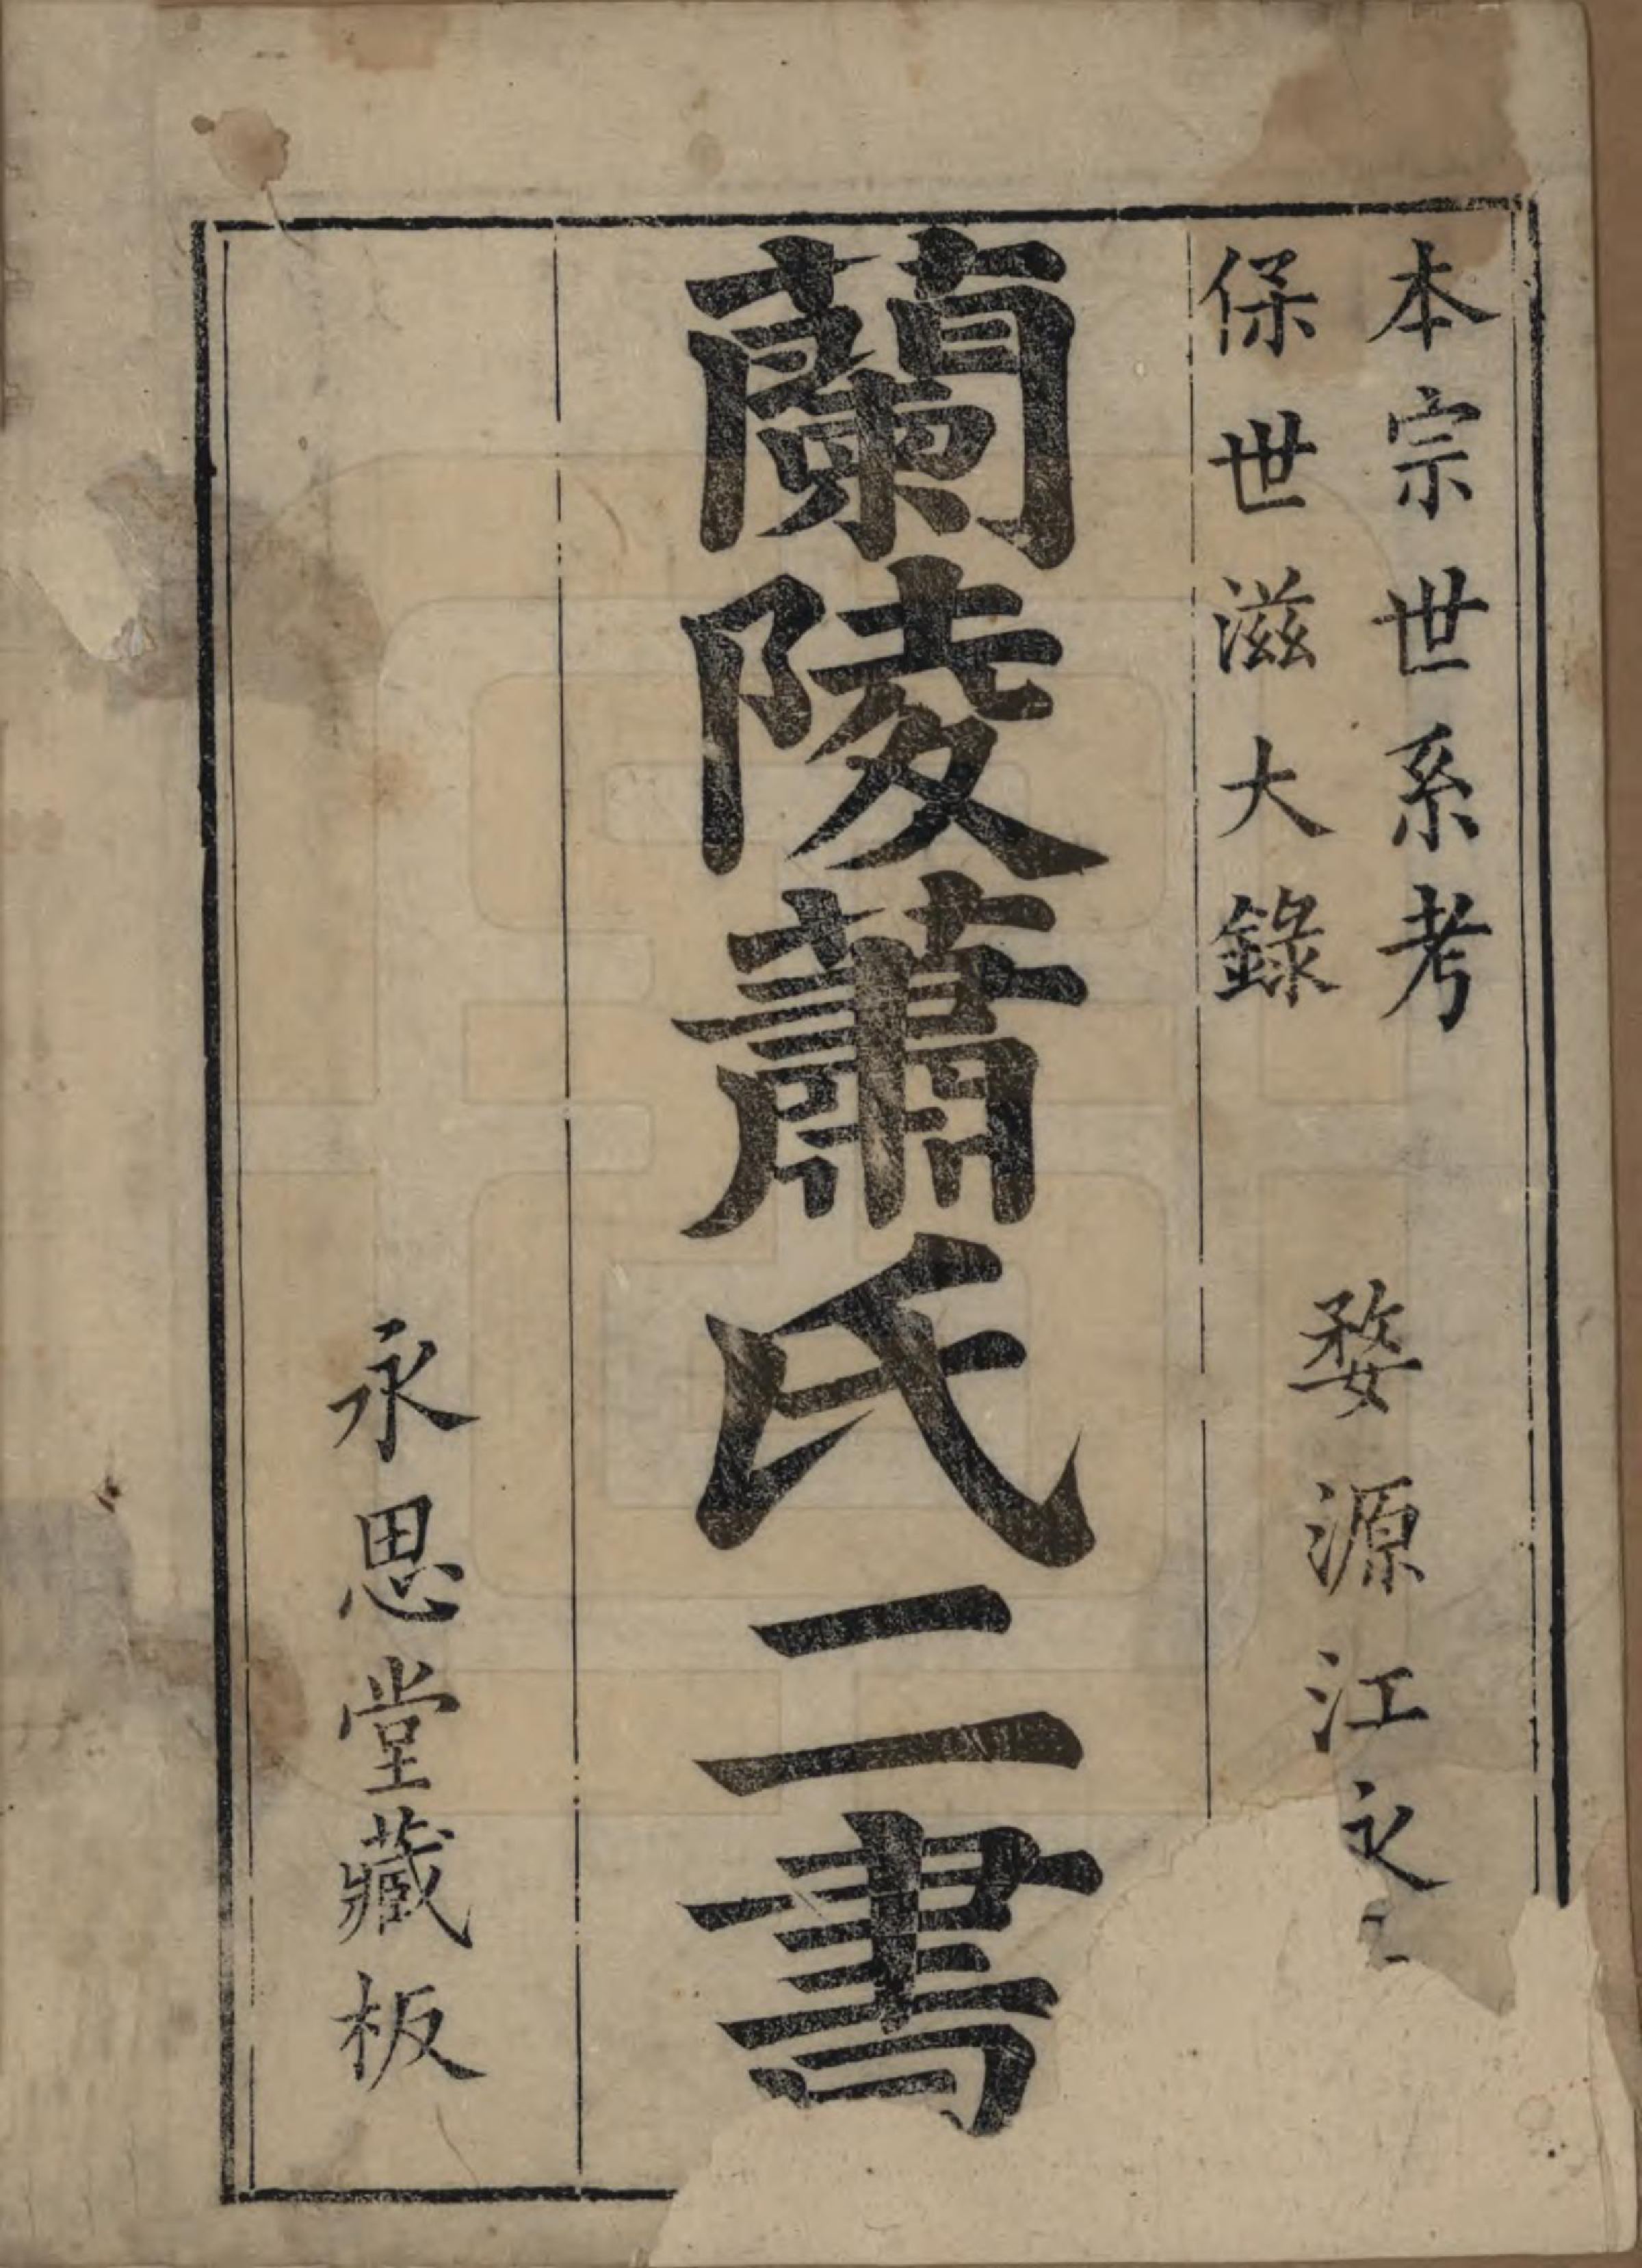 本宗世系考
保世滋大錄
婺源江
蘭陵蕭氏二書
永思堂藏板